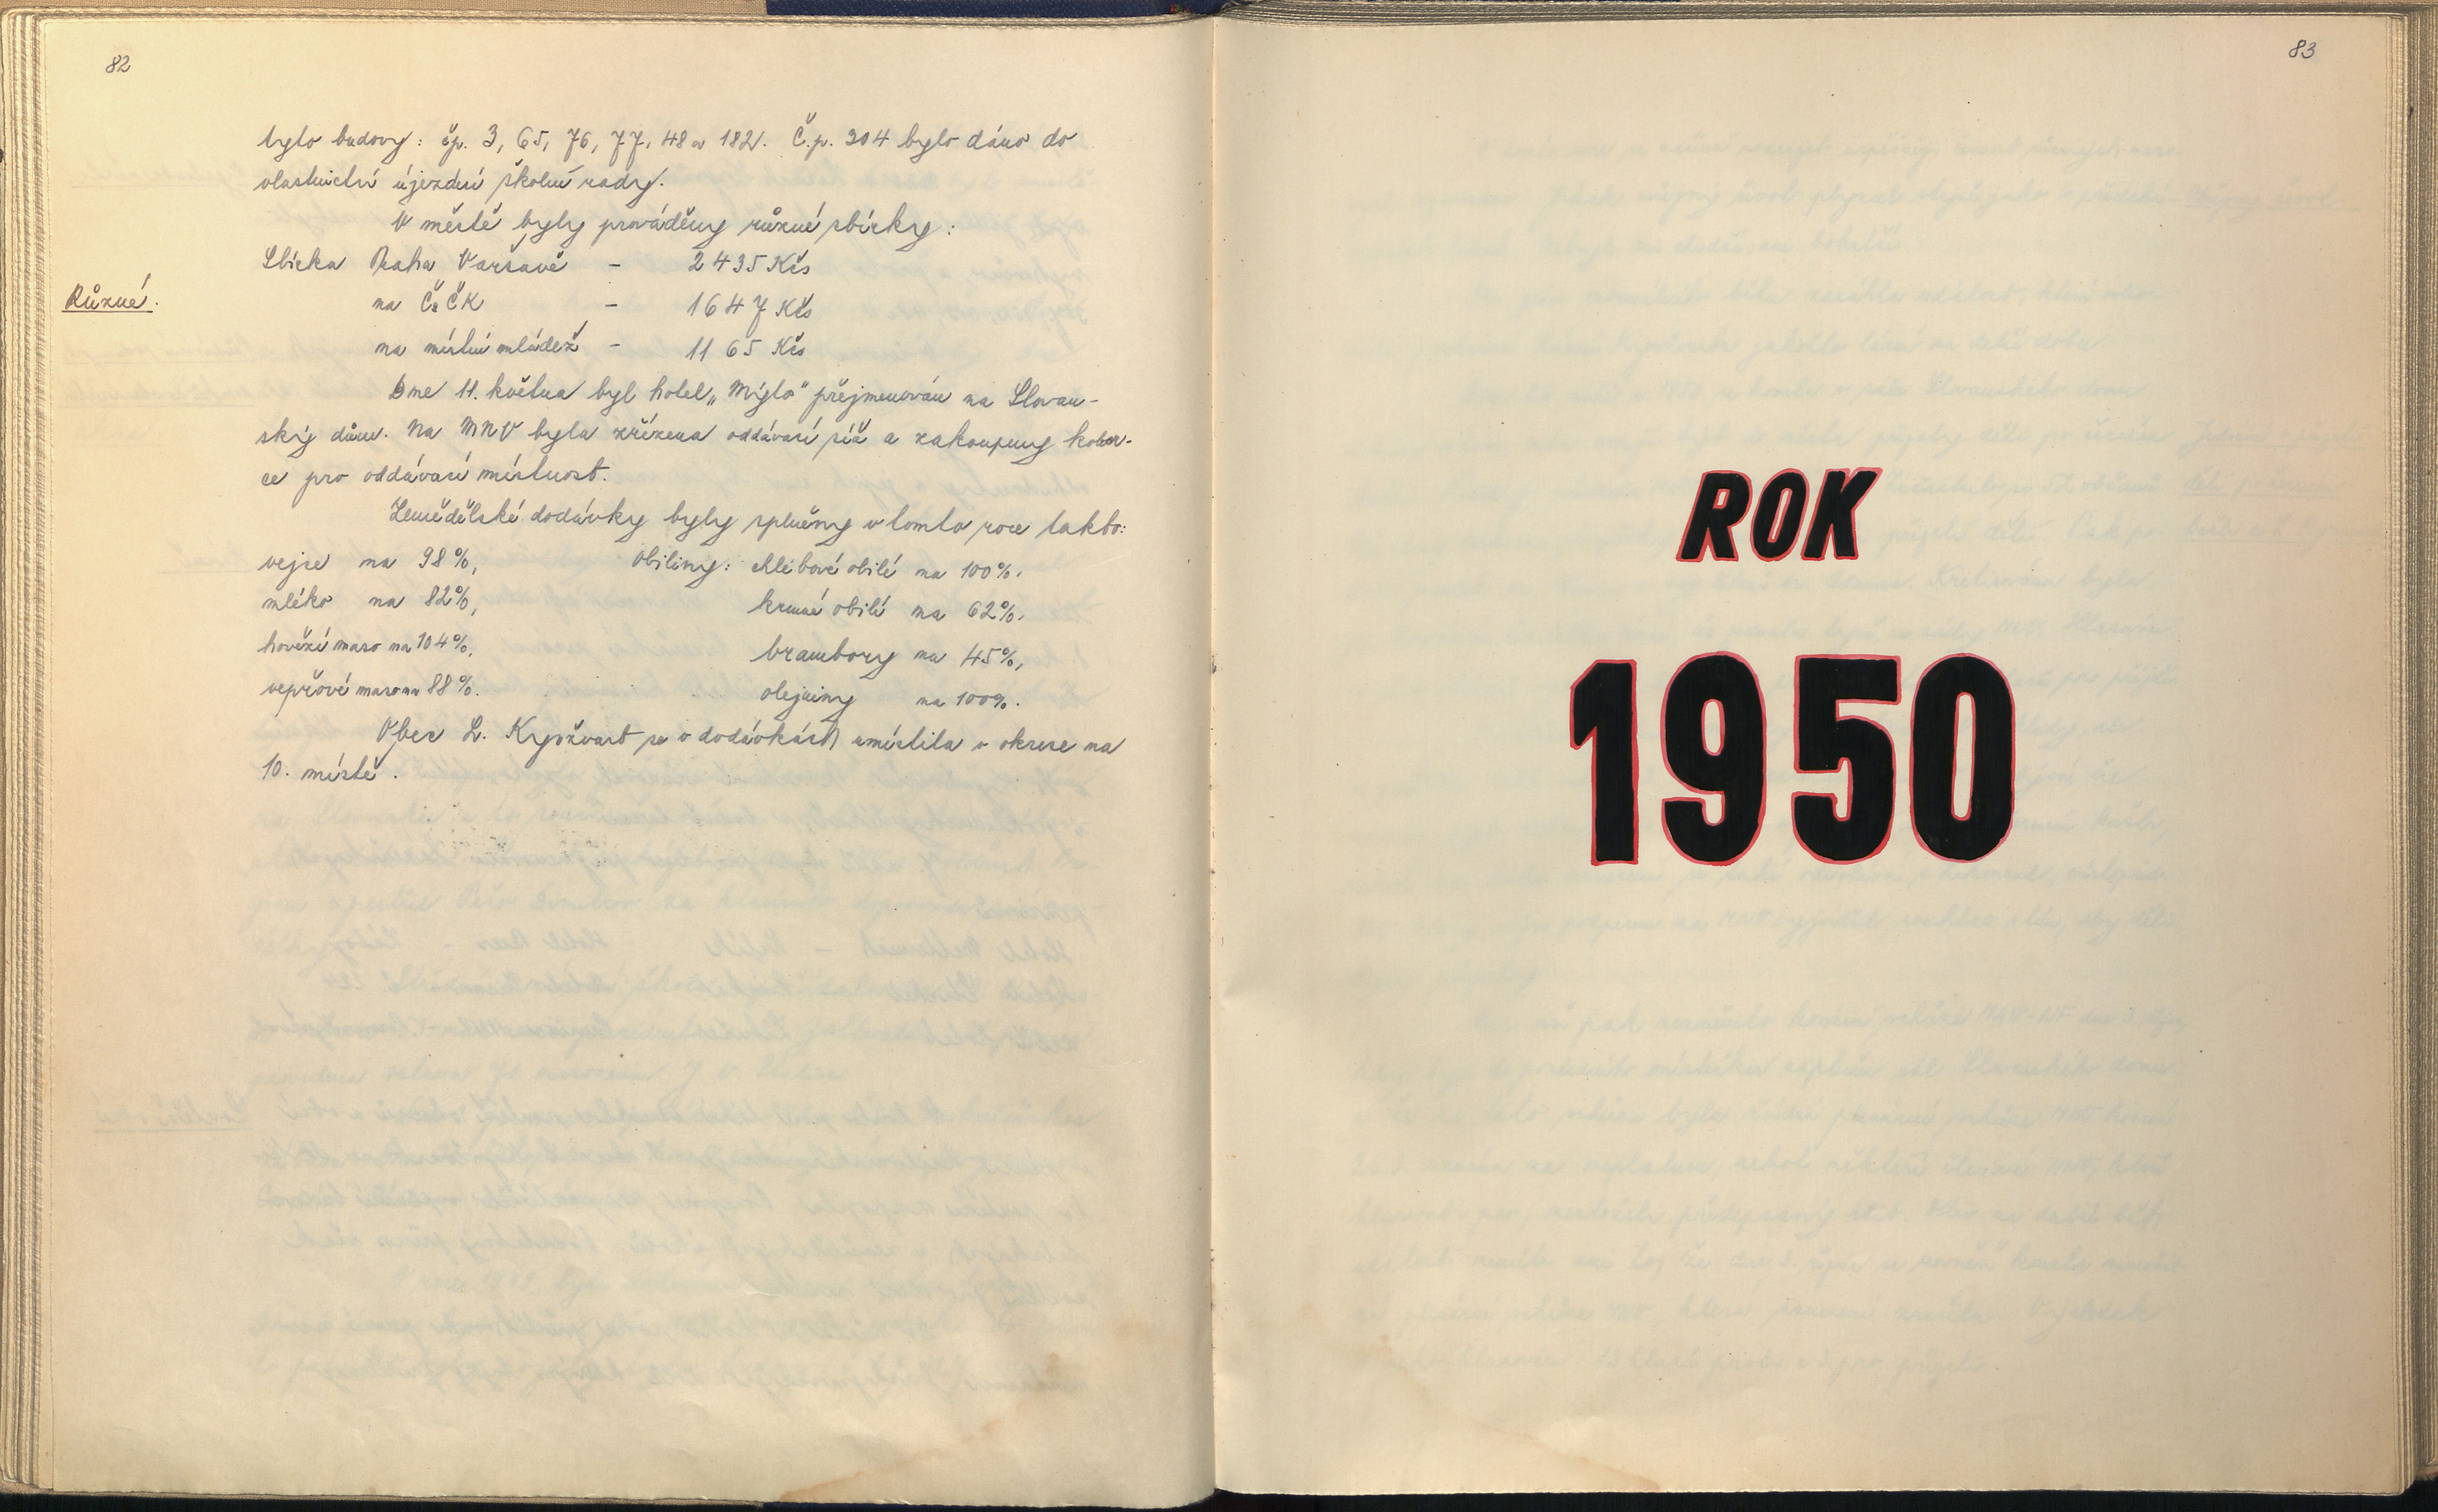 82
tyto budovy: čp. 3, 65, 76, 77, 48 a 182. Č.p. 304 bylo dáno do
vlastnictví újezdní školní rady.
V městě byly prováděny různé sbírky:
Sbírka Praha Varšavě - 2435 Kčs
Různé.
na ČsČK - 1647 Kčs
na místní mládež - 1165 Kčs
Dne 11. května byl hotel „Mýto" přejmenován na Slovan-
ský dům. Na MNV byla zřízena oddávací síň a zakoupeny kober-
ce pro oddávací místnost.
Zemědělské dodávky byly splněny v tomto roce takto:
vejce na 98%, Obiliny: chlébové obilí na 100%.
mléko na 82%, krmné obilí na 62%.
hovězí maso na 104%, brambory na 45%,
vepřové maso na 88%. olejniny na 100%.
Obec L. Kynžvart se v dodávkách umístila v okrese na
10. místě.
83
ROK
1950